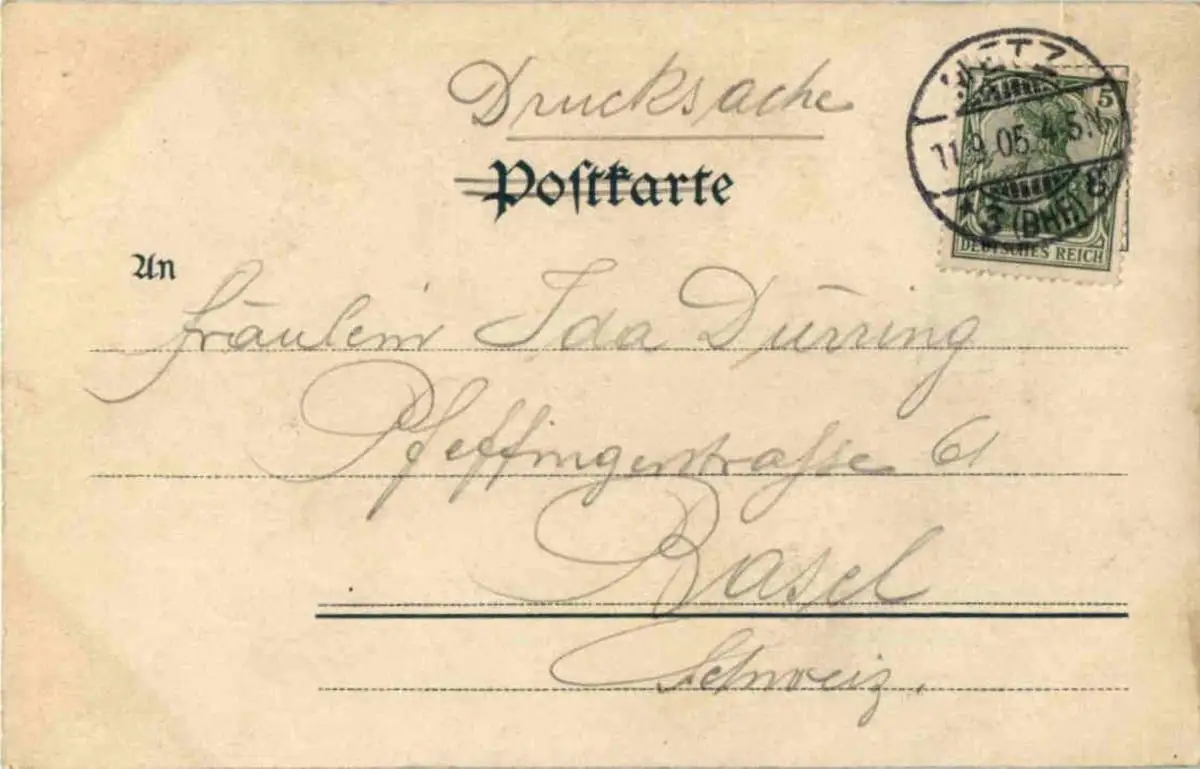 Drucksache
Postkarte
METZ
11.9.05.4-5.N.
* 3 (BHF.) g
5
DEUTSCHES REICH
An
Fräulein Ida Dürring
Pfeffingerstrasse 61
Basel
Schweiz.